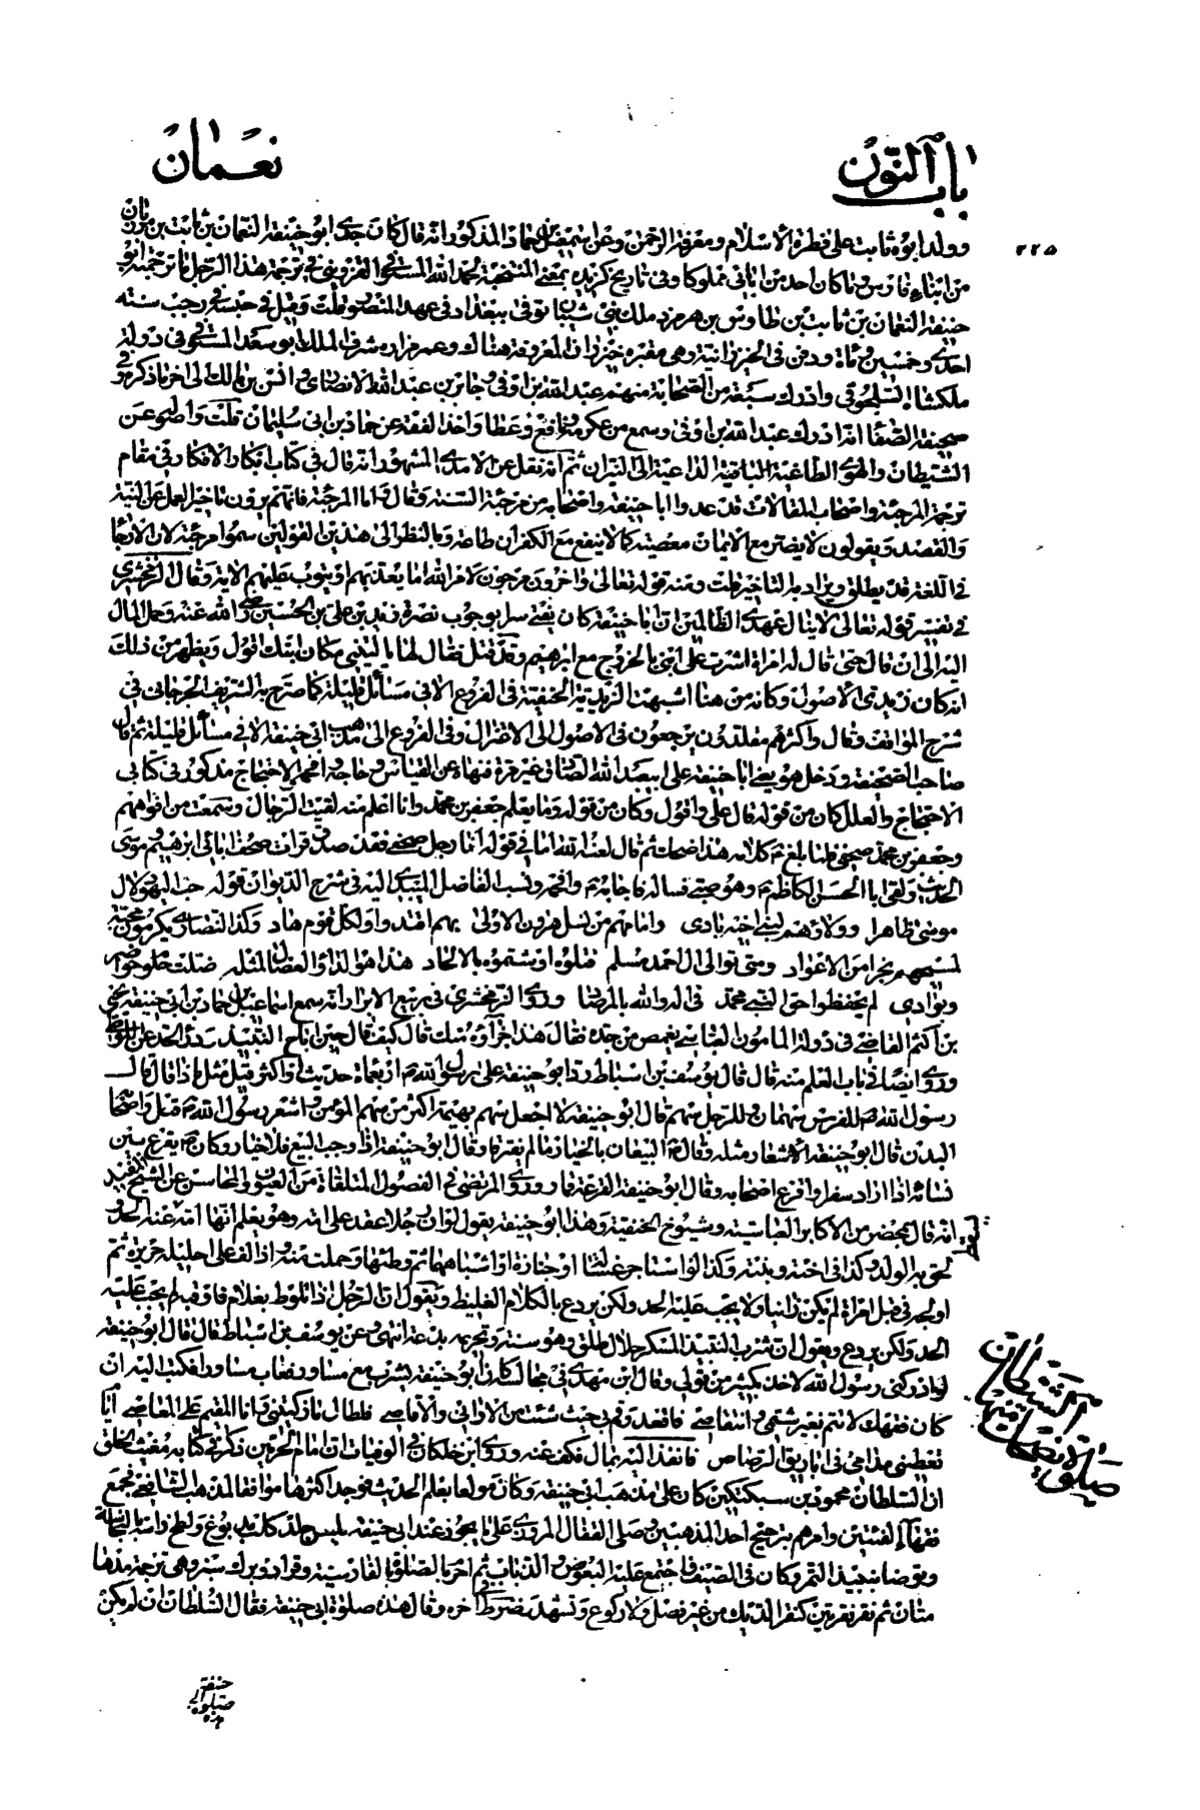 باب النون
نعمان
٢٢٥
وولد ابوه ثابت على فطرة الاسلام ومعرفة الرحمن وعن اسمعيل بن حماد المذكور انه قال كان جدي ابو حنيفة النعمان بن ثابت بن مرزبان
من ابناء فارس وما كان احد من ابائي مملوكا وفي تاريخ كزيده بمعنى المنتخبة لحمد الله المستوفي القزويني في ترجمة هذا الرجل ما ترجمته ابو
حنيفة النعمان بن ثابت بن طاوس بن هرمز ملك بني شيبان توفي ببغداد في عهد المنصور قلت وقيل في حبسه في رجب سنة
احدى وخمسين ومأة ودفن في الخيزرانية وهي مقبرة خيزران المعروفة هناك وعمر مزاره شرف الملك ابو سعد المستوفي في دولة
ملكشاه السلجوقي وادرك سبعة من الصحابة منهم عبد الله بن اوفى وجابر بن عبد الله الانصاري وانس بن مالك الى اخر ما ذكره وفي
صحيفة الصفا انه ادرك عبد الله بن اوفى وسمع من عكرمة ونافع وعطا واخذ الفقه عن حماد بن ابي سليمان قلت واضلوه عن
الشيطان والهوى الطاغية الباقية الداعية الى النيران ثم انه نقل عن الامدي المشهور انه قال في كتاب ابكار الافكار في مقام
ترجمة المرجئة واصحاب المقالات قد عدوا ابا حنيفة واصحابه من مرجئة السنة وقال واما المرجئة فانهم يرون تاخير العمل عن النية
والقصد ويقولون لا يضر مع الايمان معصية كما لا ينفع مع الكفر ان طاعة وبالنظر الى هذين القولين سموا مرجئة لان الارجا
في اللغة قد يطلق ويراد به التاخير قلت ومنه قوله تعالى واخرون مرجون لامر الله اما يعذبهم او يتوب عليهم الاية وقال الزمخشري
في تفسير قوله تعالى لا ينال عهدي الظالمين ان ابا حنيفة كان يفتي سرا بوجوب نصرة زيد بن علي بن الحسين رضي الله عنه وحمل المال
اليه الى ان قال حتى قال له امراة اشرت على ابني بالخروج مع ابرهيم وقد قتل فقال لها يا ليتني مكان ابنك اقول ويظهر من ذلك
انه كان زيدي الاصول وكانه من هنا اشبهت الزيدية الحنفية في الفروع الا في مسائل قليلة كما صرح به الشريف الجرجاني في
شرح المواقف وقال واكثرهم مقلدون يرجعون في الاصول الى الاعتزال وفي الفروع الى مذهب ابي حنيفة الا في مسائل قليلة ثم قال
صاحب الصحيفة ودخل هو يعني ابا حنيفة على ابيعبد الله الصادق غير مرة فنهاه عن القياس وحاجه وافحمه الاحتجاج مذكور في كتابي
الاحتجاج والعلل كان من قوله قال علي واقول وكان من قوله وما يعلم جعفر بن محمد وانا اعلم منه لقيت الرجال وسمعت من افواههم
وجعفر بن محمد صحفي فلما بلغه ع كلامه هذا ضحك ثم قال لعنه الله اما في قوله انا رجل صحفي فقد صدق قرات صحف ابائي ابرهيم وموسى
الحديث ولقي ابا الحسن الكاظم ع وهو صبي فساله فاجابه ع وافحمه ونسب الفاضل الميبدي اليه في شرح الديوان قوله حب اليهود لال
موسى ظاهر وولاؤهم لبني اخيه بادي وامامهم من نسل هرون الاولى بهم اقتدوا ولكل قوم هاد وكذا النصارى يكرمون محبة
لمسيحهم نجرا من الاعواد ومتى توالى ال احمد مسلم قتلوه او سموه بالالحاد هذا هو الداء العضال لمثله ضلت حلوم حواضر
وبوادي لم يحفظوا حق النبي محمد في اله والله بالمرصاد وروى الزمخشري في ربيع الابرار انه سمع اسماعيل بن حماد بن ابي حنيفة يحيى
بن اكثم القاضي في دولة المامون العباسي يغمص من جده فقال هذا جزاؤه منك قال كيف قال حين اباح النبيذ ودرء الحد عن اللواط
وروى ايضا في باب العلم منه قال قال يوسف بن اسباط رد ابو حنيفة على رسول الله ص اربعمأة حديث او اكثر قيل مثل ماذا قال قال
رسول الله ص للفرس سهمان وللرجل سهم قال ابو حنيفة لا اجعل سهم بهيمة اكثر من سهم المؤمن واشعر رسول الله ص قبل واصحابه
البدن قال ابو حنيفة الاشعار مثلة وقال ص البيعان بالخيار ما لم يفترقا وقال ابو حنيفة اذا وجب البيع فلا خيار وكان ص يقرع بين
نسائه اذا اراد سفرا واقرع اصحابه وقال ابو حنيفة القرعة قمار وروى المرتضى في الفصول المتلقاة من العيون والمحاسن عن الشيخ المفيد
انه قال بمحضر من الاكابر العباسية وشيوخ الحنفية وهذا ابو حنيفة يقول لو ان رجلا عقد على امه وهو يعلم انها امه سقط عنه الحد و
لحق به الولد وكذا في اخته وبنته وكذا لو استاجر غسالة او خبازة او اشباههما ثم وطئها وحملت منه واذا لف على احليله حريرة ثم
اولجه في قبل امراة لم يكن زانيا ولا يجب عليه الحد ولكن يردع بالكلام الغليظ ويقول ان الرجل اذا تلوط بغلام فاوقب لم يجب عليه
الحد ولكن يردع ويقول ان شرب النبيذ المسكر حلال طلق وهو سنة وتحريمه بدعة انتهى وعن يوسف بن اسباط قال قال ابو حنيفة
لو ادركني رسول الله لاخذ بكثير من قولي وقال ابن مهدي في مجالسه كان ابو حنيفة يشرب مع مساور فعاب مساورا فكتب اليه ان
كان فقهك لا تتم بغير شتمي وانتقاصي فاقعد وقم بي حيث شئت من الاداني والاقاصي فلطال ما زكيتني وانا المقيم على المعاصي ايام
تعطيني مدامي في اباريق الرصاص فانفذ اليه بمال فكف عنه وروى ابن خلكان في الوفيات ان امام الحرمين ذكر في كتابه مغيث الخلق
ان السلطان محمود بن سبكتكين كان على مذهب ابي حنيفة وكان مولعا بعلم الحديث فوجد اكثرها موافقا لمذهب الشافعي فجمع
فقهاء الفئتين وامرهم بترجيح احد المذهبين وصلى القفال المروزي على ما يجوز عند ابي حنيفة بلبس جلد كلب مدبوغ ولطخ ربعه بالنجاسة
وتوضا بنبيذ التمر وكان في الصيف فاجتمع عليه البعوض والذباب ثم احرم بالصلوة بالفارسية وقرا دو برك سبز وهي ترجمة مدها
متان ثم نقر نقرتين كنقر الديك من غير فصل ولا ركوع وتشهد وضرط في اخره وقال هذه صلوة ابي حنيفة فقال السلطان ان لم يكن